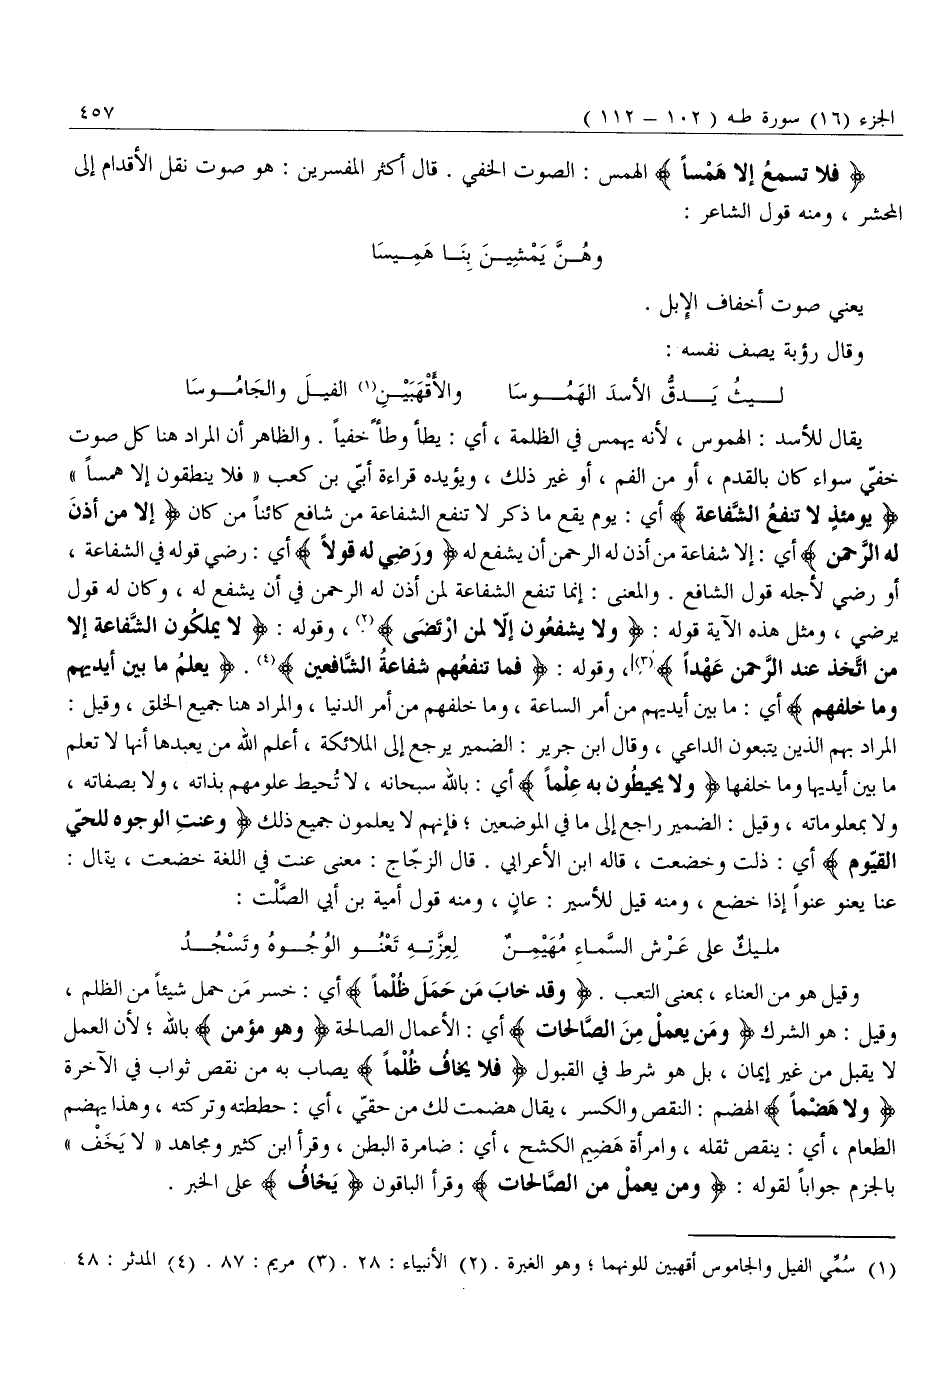 الجزء (١٦) سورة طه ( ١٠٢ – ١١٢ ) ٤٥٧
﴿ فلا تسمعُ إلا هَمْساً ﴾ الهمس : الصوت الخفي . قال أكثر المفسرين : هو صوت نقل الأقدام إلى
المحشر ، ومنه قول الشاعر :
وهُـنَّ يَمْشِيـنَ بِنَـا هَمِيسَا
يعني صوت أخفاف الإبل .
وقال رؤبة يصف نفسه :
لـيـثُ يَـدقُّ الأسدَ الهَمُـوسَا والأَقْهَبَيْـنِ(١) الفيلَ والجَامُـوسَا
يقال للأسد : الهموس ، لأنه يهمس في الظلمة ، أي : يطأ وطأً خفياً . والظاهر أن المراد هنا كل صوت
خفيّ سواء كان بالقدم ، أو من الفم ، أو غير ذلك ، ويؤيده قراءة أبيّ بن كعب « فلا ينطقون إلا همساً »
﴿ يومئذٍ لا تنفعُ الشَّفاعة ﴾ أي : يوم يقع ما ذكر لا تنفع الشفاعة من شافع كائناً من كان ﴿ إلا من أذنَ
له الرَّحمن ﴾ أي : إلا شفاعة من أذن له الرحمن أن يشفع له ﴿ ورَضِي له قولاً ﴾ أي : رضي قوله في الشفاعة ،
أو رضي لأجله قول الشافع . والمعنى : إنما تنفع الشفاعة لمن أذن له الرحمن في أن يشفع له ، وكان له قول
يرضي ، ومثل هذه الآية قوله : ﴿ ولا يشفعُون إلّا لمن ارْتَضَى ﴾(٢) ، وقوله : ﴿ لا يملكُون الشَّفاعة إلا
من اتَّخذ عند الرَّحمن عَهْداً ﴾(٣)، وقوله : ﴿ فما تنفعُهم شفاعةُ الشَّافعين ﴾(٤) . ﴿ يعلمُ ما بين أيديهم
وما خلفهم ﴾ أي : ما بين أيديهم من أمر الساعة ، وما خلفهم من أمر الدنيا ، والمراد هنا جميع الخلق ، وقيل :
المراد بهم الذين يتبعون الداعي ، وقال ابن جرير : الضمير يرجع إلى الملائكة ، أعلم الله من يعبدها أنها لا تعلم
ما بين أيديها وما خلفها ﴿ ولا يحيطُون به عِلْماً ﴾ أي : بالله سبحانه ، لا تُحيط علومهم بذاته ، ولا بصفاته ،
ولا بمعلوماته ، وقيل : الضمير راجع إلى ما في الموضعين ؛ فإنهم لا يعلمون جميع ذلك ﴿ وعنتِ الوجوه للحيّ
القيّوم ﴾ أي : ذلت وخضعت ، قاله ابن الأعرابي . قال الزجّاج : معنى عنت في اللغة خضعت ، يقال :
عنا يعنو عنواً إذا خضع ، ومنه قيل للأسير : عانٍ ، ومنه قول أمية بن أبي الصَّلْت :
مليكٌ على عَرْش السَّماءِ مُهَيْمِـنٌ لِعِزَّتِـهِ تَعْنُـو الوُجُـوهُ وتَسْجُـدُ
وقيل هو من العناء ، بمعنى التعب . ﴿ وقد خابَ مَن حَمَلَ ظُلْماً ﴾ أي : خسر مَن حمل شيئاً من الظلم ،
وقيل : هو الشرك ﴿ ومَن يعملْ مِنَ الصَّالحات ﴾ أي : الأعمال الصالحة ﴿ وهو مؤمن ﴾ بالله ؛ لأن العمل
لا يقبل من غير إيمان ، بل هو شرط في القبول ﴿ فلا يخافُ ظُلْماً ﴾ يصاب به من نقص ثواب في الآخرة
﴿ ولا هَضْماً ﴾ الهضم : النقص والكسر ، يقال هضمت لك من حقيّ ، أي : حططته وتركته ، وهذا يهضم
الطعام ، أي : ينقص ثقله ، وامرأة هَضِيم الكشح ، أي : ضامرة البطن ، وقرأ ابن كثير ومجاهد « لا يَخَفْ »
بالجزم جواباً لقوله : ﴿ ومن يعملْ من الصَّالحات ﴾ وقرأ الباقون ﴿ يَخَافُ ﴾ على الخبر .
(١) سُمِّي الفيل والجاموس أقهبين للونهما ؛ وهو الغبرة . (٢) الأنبياء : ٢٨ . (٣) مريم : ٨٧ . (٤) المدثر : ٤٨ .